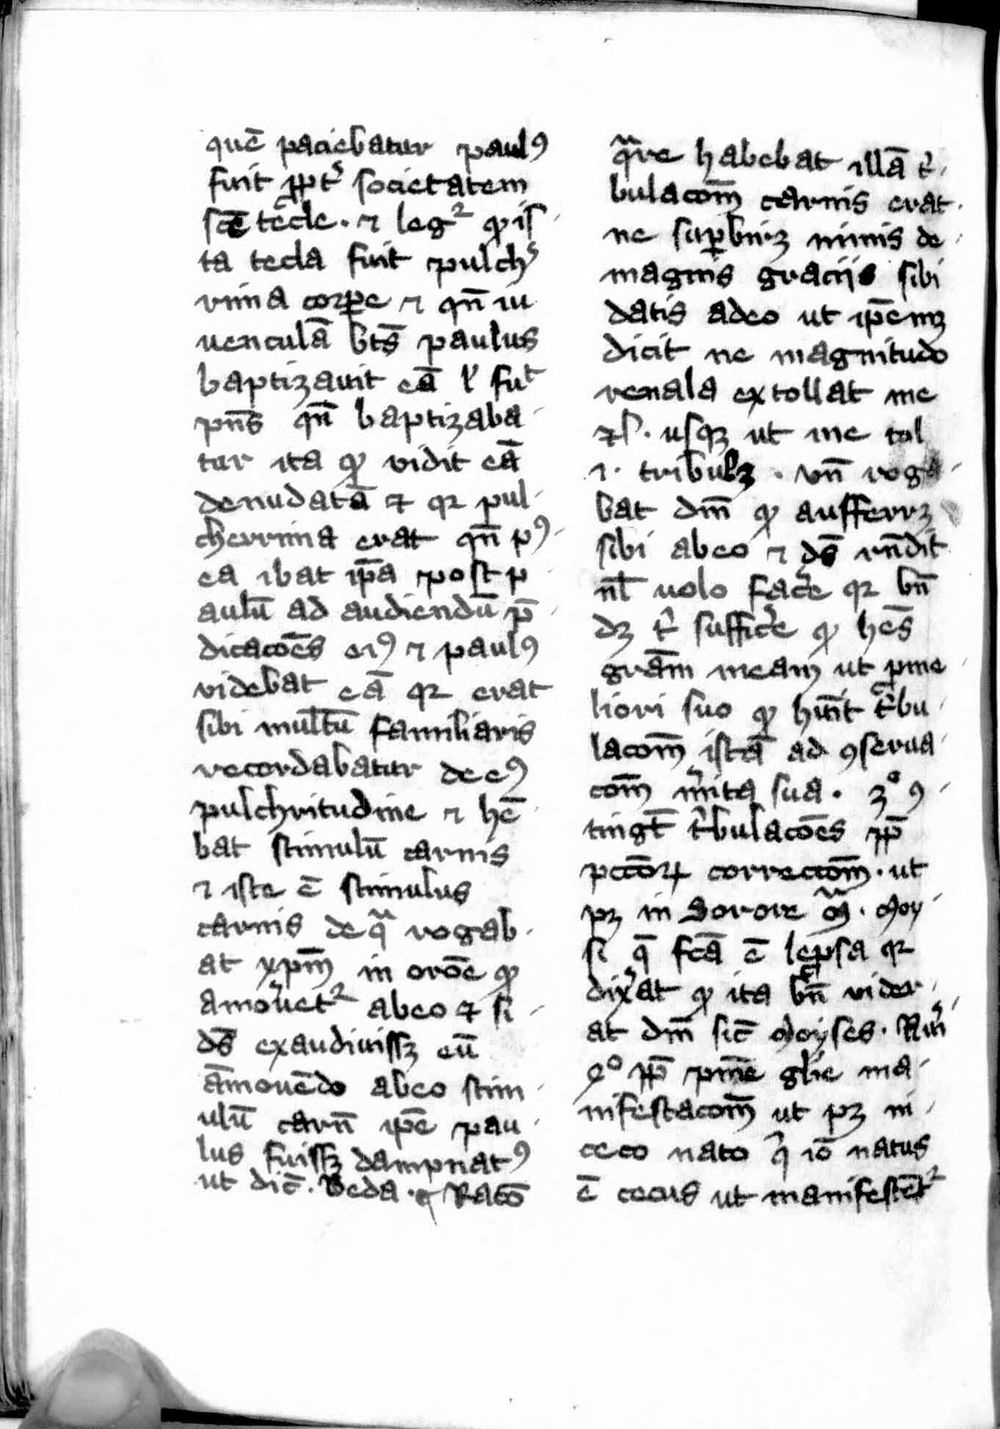 quē paciebatur paulꝰ
fuit ꝓpt̾ societatem
scē tecle · ⁊ leg² ꝙ iſ
ta tecla fuit pulch̾
rima corꝑe ⁊ qn̄ iu
uenculā bt̄s paulus
baptizauit eā l̓ fuͭ
pn̄s qn̄ baptizaba
tur ita ꝙ vidit eā
denudatā ⁊ qꝛ pul
cherrima erat qn̄ pꝰ
ea ibat ip̄a post p
aulū ad audiendū p̄
dicacōēs eiꝰ ⁊ paulꝰ
videbat eā qꝛ erat
sibi multū familiaris
recordabatur de eꝰ
pulchritudine ⁊ hē
bat stimulū carnis
⁊ iste ē stimulus
carnis de qᷓ rogab
at xp̄m in orōe ꝙ
amou̾et² abeo ⁊ si
ds̄ exaudiuissꝫ eū
āmouēdo abeo stim
ulū carn̄ ip̄e pau
lus fuissꝫ dampnatꝰ
ut dic̄ · Beda · ⁊ Racō
qᷓre habebat illā t̾
bulacōm̄ carnis erat
ne suꝑbirꝫ nimis de
magnis graciis sibi
datis adeo ut ip̄emꝫ
dicit ne magnitudo
reuala extollat me
⁊ł · usqꝫ ut me tol
i · tribulꝫ · vn̄ roga
bat dm̄ ꝙ aufferrꝫ
sibi abeo ⁊ ds̄ rn̄dit
nl̄ uolo fac̾e qꝛ bn̄
dꝫ t̾ suffic̾e ꝙ hēs
grām meam ut pme
liori suo ꝙ hūit t̾bu
lacōm̄ istā ad ꝯserua
cōm̄ m̾ita sua · 3° ꝯ
tingt̄ t̾bulacōēs ꝓp̄
pccōꝝ correccōm̄ · ut
pꝫ in Sorore · moy
si q̄ fcā ē lep̄sa qꝛ
dix̾at ꝙ ita bn̄ vider
at dm̄ sic̄ moyses ·
4° ꝓp̄ glīe ma
nifestacōm̄ ut pꝫ in
ceco nato q̾ iō natus
ē cecus ut manifestēt²